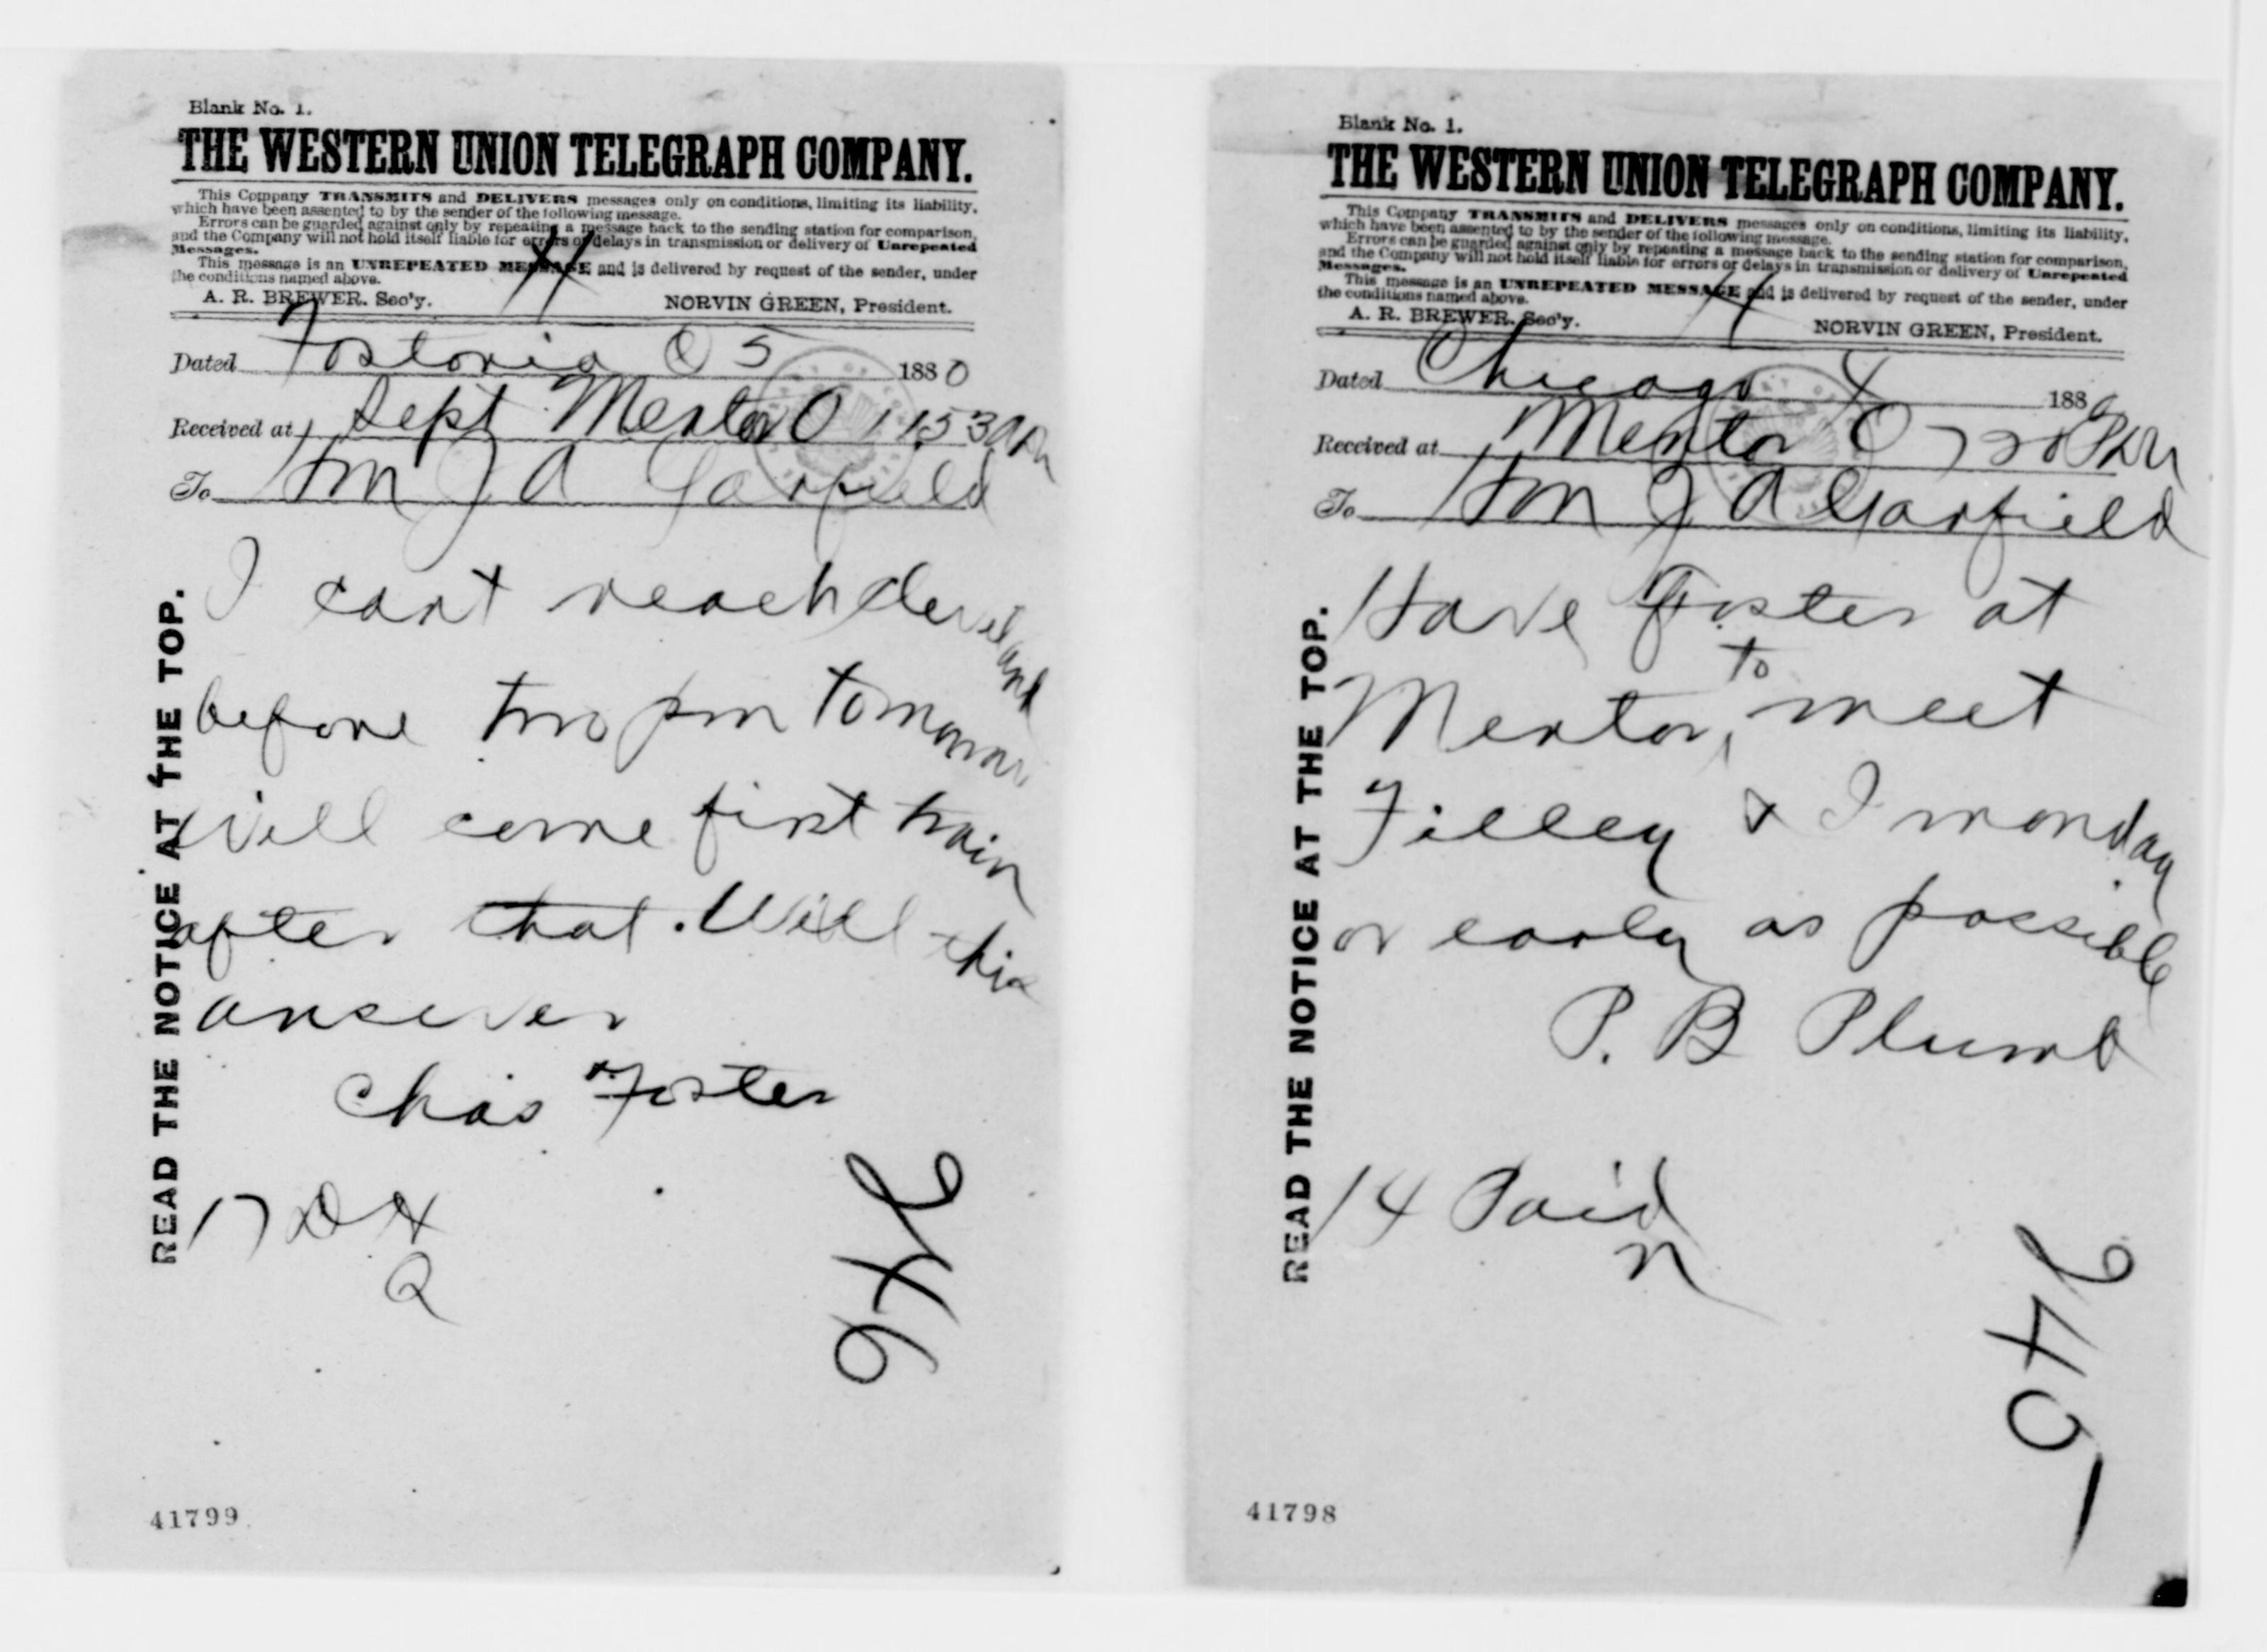 Blank No. 1.
THE WESTERN UNION TELEGRAPH COMPANY.
This Company TRANSMITS and DELIVERS messages only on conditions, limiting its liability,
which have been assented to by the sender of the following message.
Errors can be guarded against only by repeating a message back to the sending station for comparison,
and the Company will not hold itself liable for errors or delays in transmission or delivery of Unrepeated
Messages.
This message is an UNREPEATED MESSAGE and is delivered by request of the sender, under
the conditions named above.
A. R. BREWER. Sec'y. NORVIN GREEN, President.
Dated Fostoria O 5 1880
Received at Sept Mentor O 1153am
To Hon J A Garfield
I cant reach Cleveland
before two pm tomorrow
Will come first train
after that. Will this
answer
Chas Foster
17 DH
Q
246
READ THE NOTICE AT THE TOP.
41799
Blank No. 1.
THE WESTERN UNION TELEGRAPH COMPANY.
This Company TRANSMITS and DELIVERS messages only on conditions, limiting its liability,
which have been assented to by the sender of the following message.
Errors can be guarded against only by repeating a message back to the sending station for comparison,
and the Company will not hold itself liable for errors or delays in transmission or delivery of Unrepeated
Messages.
This message is an UNREPEATED MESSAGE and is delivered by request of the sender, under
the conditions named above.
A. R. BREWER. Sec'y. NORVIN GREEN, President.
Dated Chicago 4 188
Received at Mentor O 720 Pm
To Hon J A Garfield
Have Foster at
Mentor to meet
Filley & I monday
or early as possible
P. B Plumb
14 Paid
n
245
READ THE NOTICE AT THE TOP.
41798